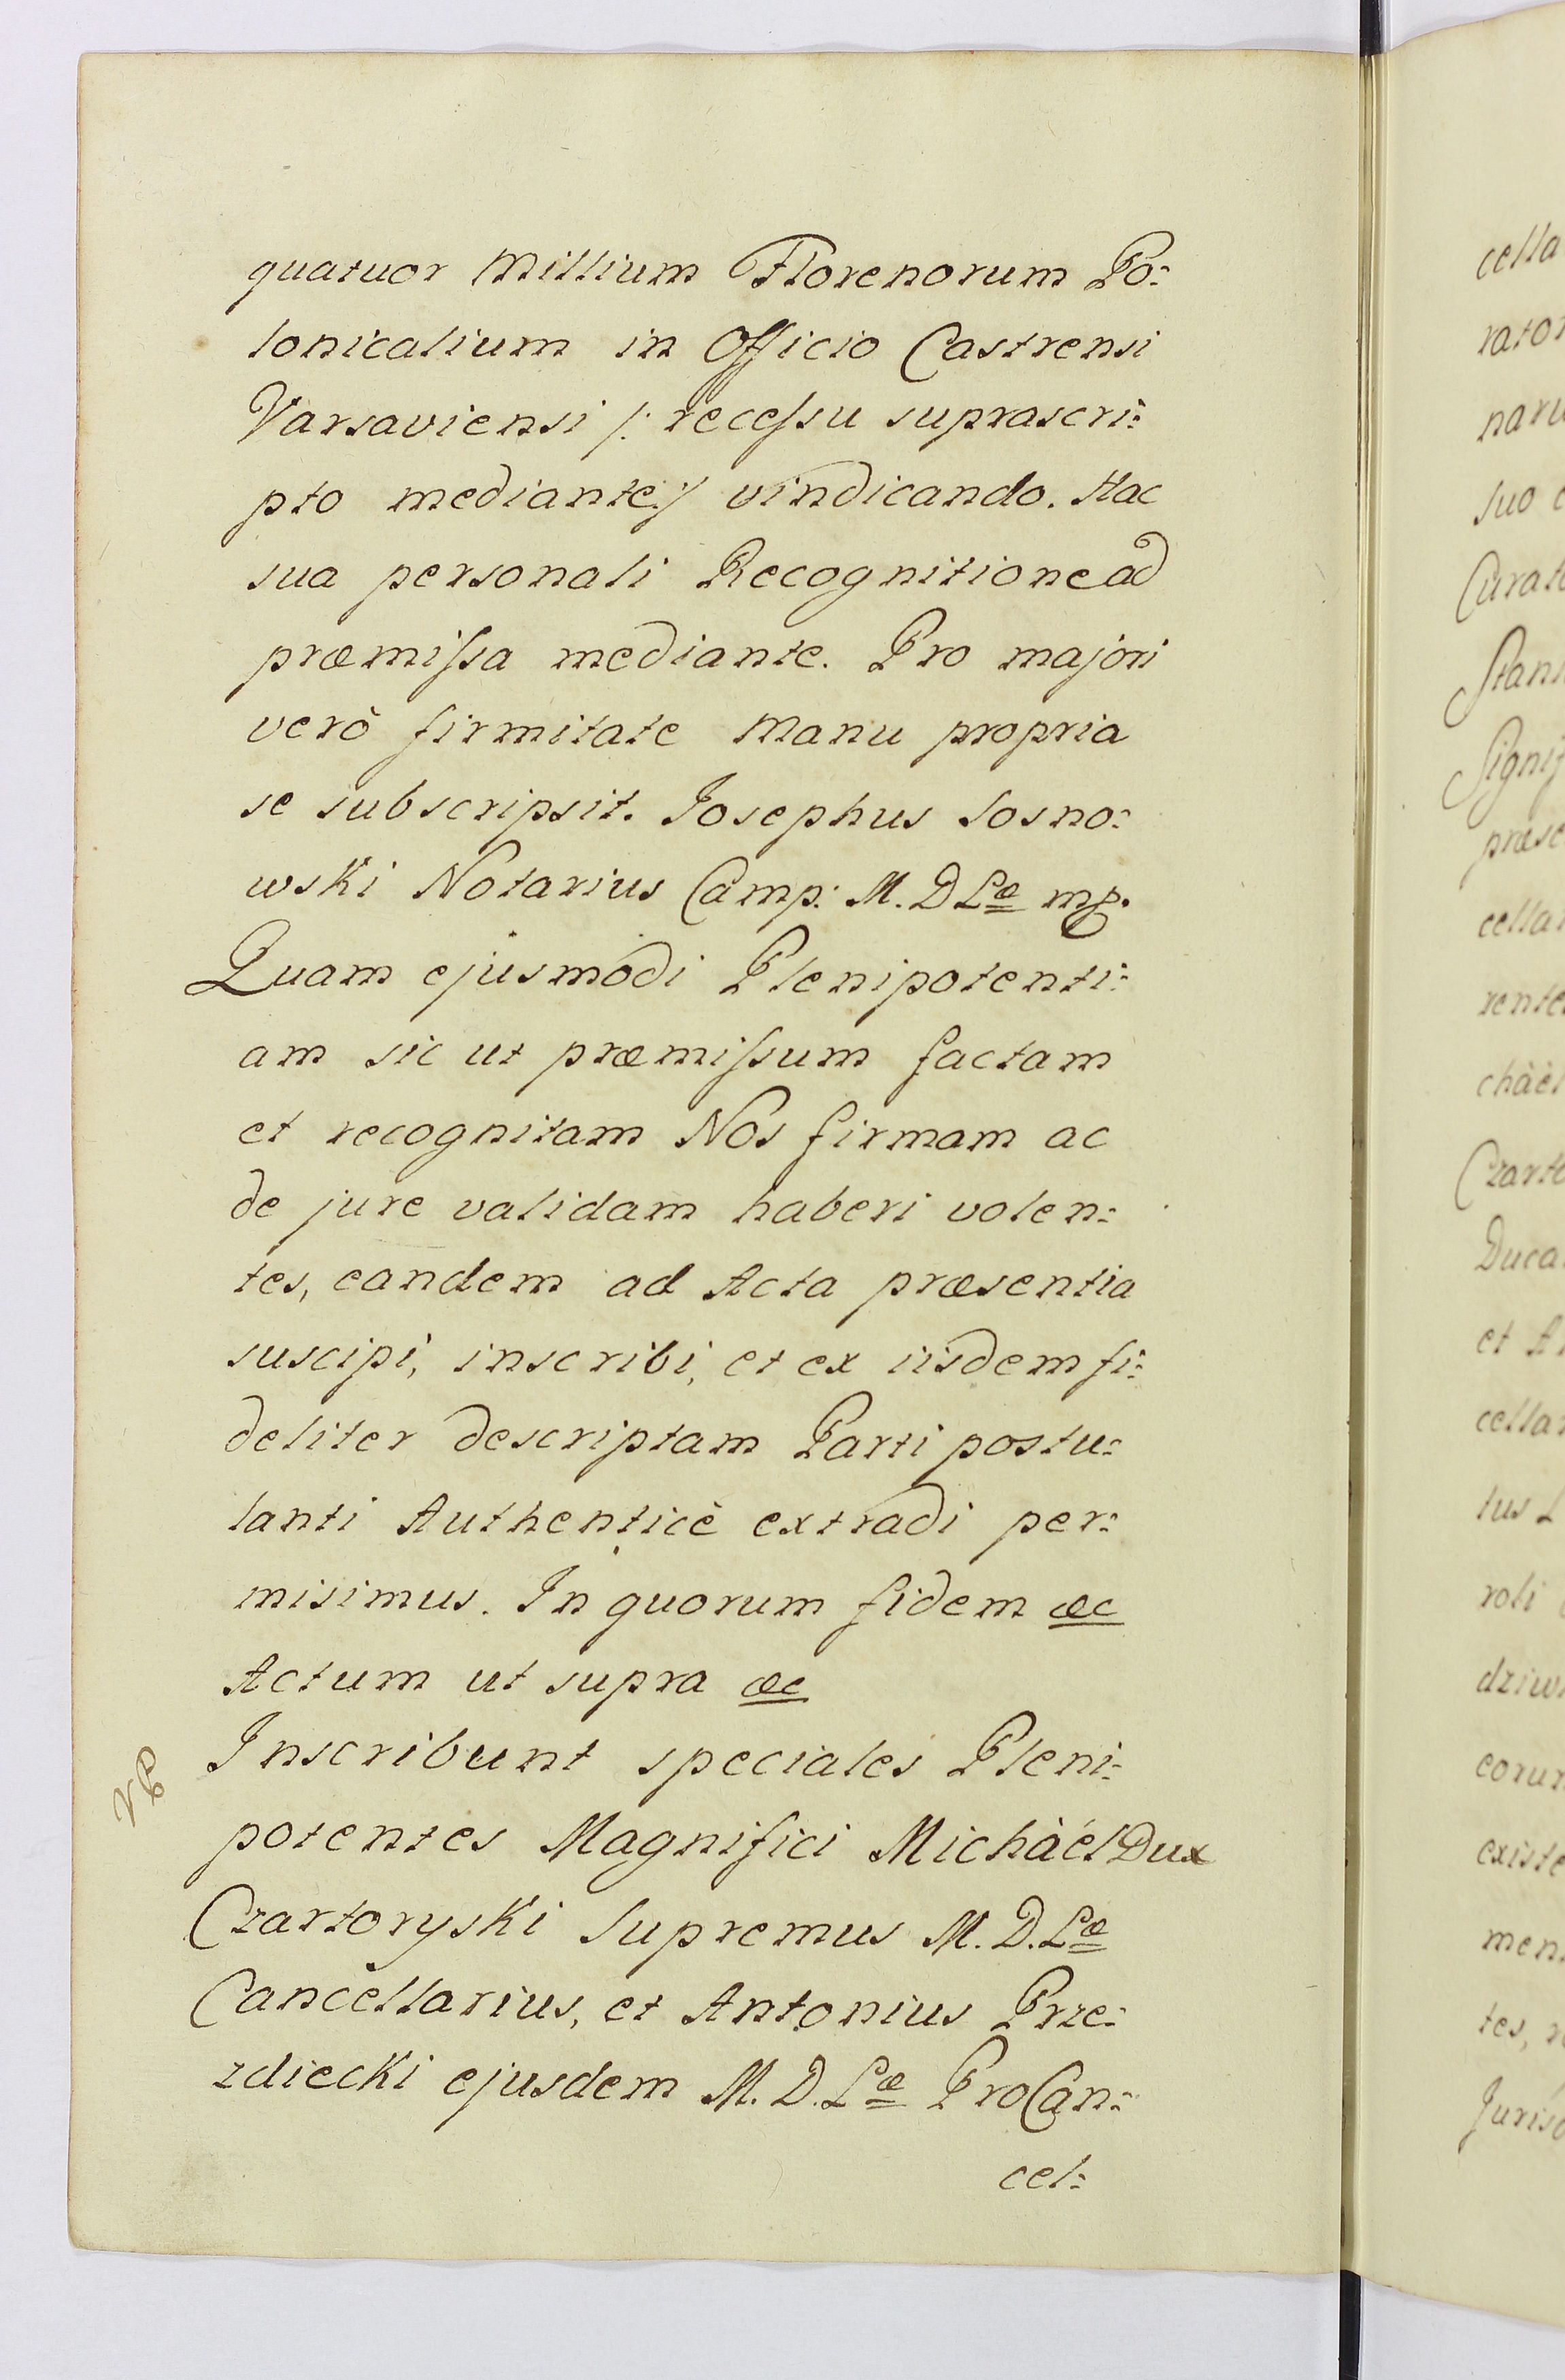 quatuor Millium Florenorum Po:
lonicalium in Officio Castrensi
Varsaviensi /: recefsu suprascri:
pto mediante:/ vindicando. Hac
sua personali Recognitione ad
præmifsa mediante. Pro majori
verò firmitate Manu propria
se subscripsit. Josephus Sosno:
wski Notarius Camp: M. D Læ mp.
Quam ejusmodi Plenipotenti:
am sic ut præmifsum factam
et recognitam Nos firmam ac
de jure validam haberi volen:
tes, eandem ad Acta præsentia
suscipi, inscribi, et ex iisdem fi:
deliter descriptam Parti postu:
lanti Authenticè extradi per:
misimus. In quorum fidem &c
Actum ut supra &c
Inscribunt speciales Pleni:
potentes Magnifici Michàél Dux
Czartoryski Supremus M. D. Læ
Cancellarius, et Antonius Prze:
zdiecki ejusdem M. D. Læ ProCan:
cel:
cella
rator
naru
suo
Curato
Stani
Signif
præse
cellar
rente
chàél
Czarto
Duca
et A
cella
lus L
roli
dziw
corun
existe
men
tes,
Juris